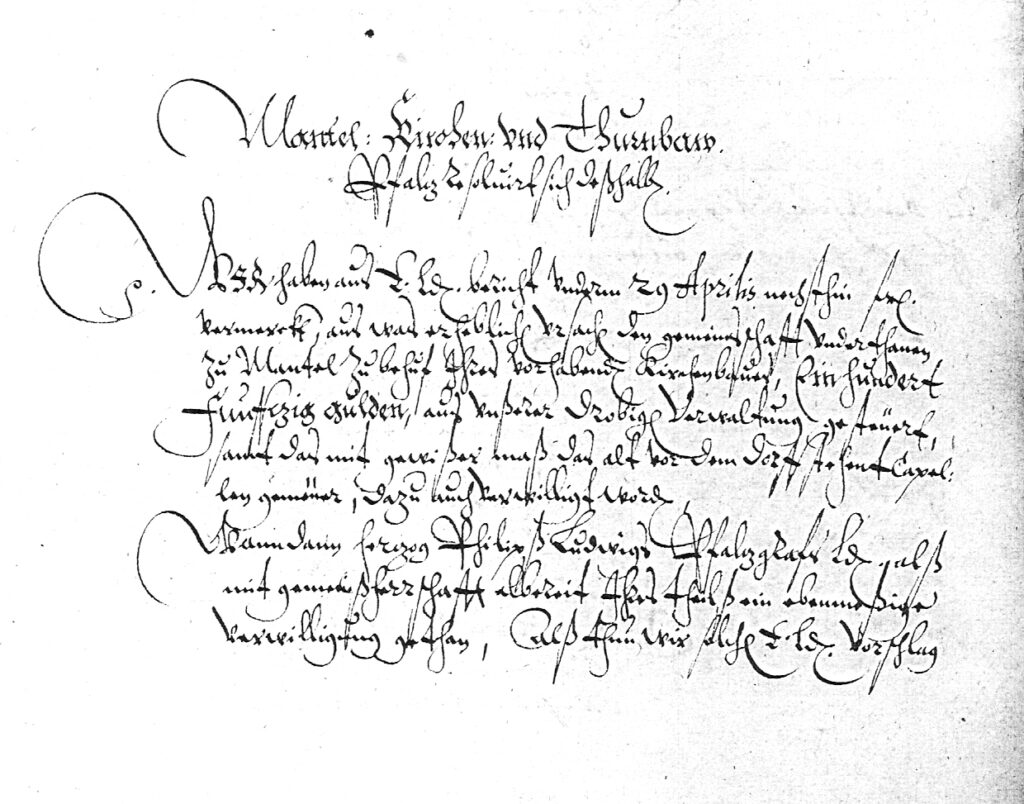 Mantel: Kirchen: vnd Thurnbaw.
Pfalz resoluirt sich deßhalb.
P. Wir haben aus E. Ld. bericht vnderm 29 Aprilis nechsthin
vermerckt, aus was erheblichen vrsachen den gemeinschafft vnderthanen
zu Mantel zu behuf Ihres vorhabenden Kirchenbaues, Einhundert
Funffzig gulden, aus vnßerer Verwaltung gesteuert,
samt das mit gewißer maß das alt vor dem dorff stehent Capel:
len gemeuer, dazu auch verwilligt worden,
Wann dann herzog Philips Ludwigs Pfalzgrafs Ld. alß
mit gemeinßherrschafft albereit Ihres theilß ein ebenmeßige
verwilligung gethan, Alß thun wir solchen E. Ld. vorschlag